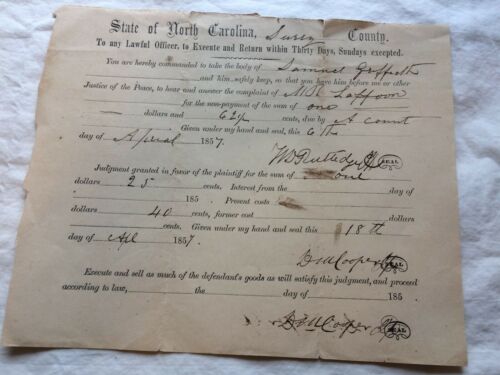 State of North Carolina, Surry County.
To any Lawful Officer, to Execute and Return within Thirty Days, Sundays excepted.
You are hereby commanded to take the body of Samuel Griffeth
and him safely keep, so that you have him before me or other
Justice of the Peace, to hear and answer the complaint of Laffoon
for the non-payment of the sum of one
dollars and 62½ cents, due by A count
Given under my hand and seal, this 6th
day of Aperal 1857.
SEAL
Judgment granted in favor of the plaintiff for the sum of one
dollars 25 cents, Interest from the day of
185 Present costs
dollars 40 cents, former cost dollars
cents. Given under my hand and seal this 18th
day of Apl 1857.
DM Cooper SEAL
Execute and sell as much of the defendant's goods as will satisfy this judgment, and proceed
according to law, this the day of 185
DM Cooper SEAL